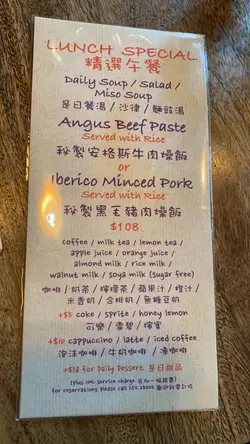 LUNCH SPECIAL
精選午餐
Daily Soup / Salad /
Miso Soup
是日餐湯 / 沙律 / 麵豉湯
Angus Beef Paste
Served with Rice
秘製安格斯牛肉燥飯
or
Iberico Minced Pork
Served with Rice
秘製黑毛豬肉燥飯
$108
coffee / milk tea / lemon tea /
apple juice / orange juice /
almond milk / rice milk /
walnut milk / soya milk (sugar free)
咖啡 / 奶茶 / 檸檬茶 / 蘋果汁 / 橙汁 /
米香奶 / 合桃奶 / 無糖豆奶
+$5 coke / sprite / honey lemon
可樂 / 雪碧 / 檸蜜
+$10 cappuccino / latte / iced coffee
泡沫咖啡 / 牛奶咖啡 / 凍咖啡
for Daily Dessert 是日甜品
(Plus 10% service charge 另加一服務費)
for reservations Please call 歡迎訂座